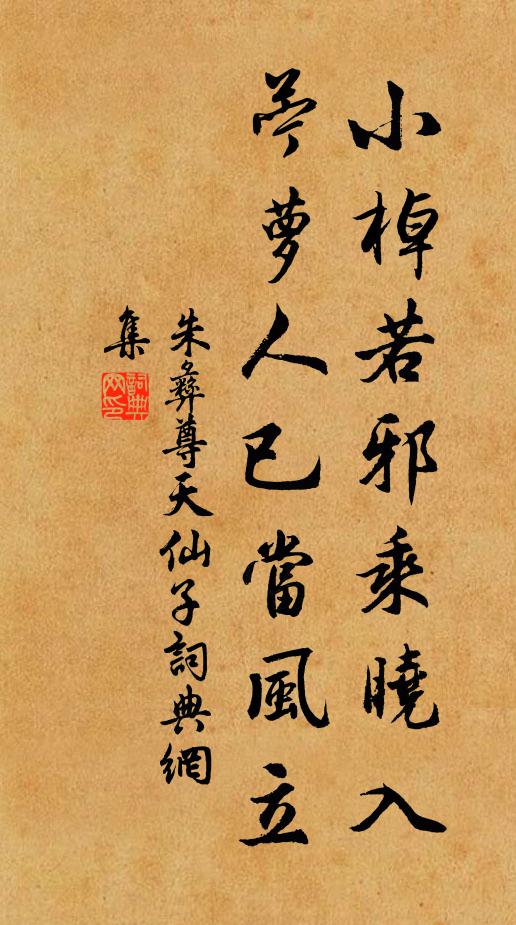 小棹若邪乘曉入
苧萝人已當風立
朱彝尊天仙子詞典網
集
詞典
网印